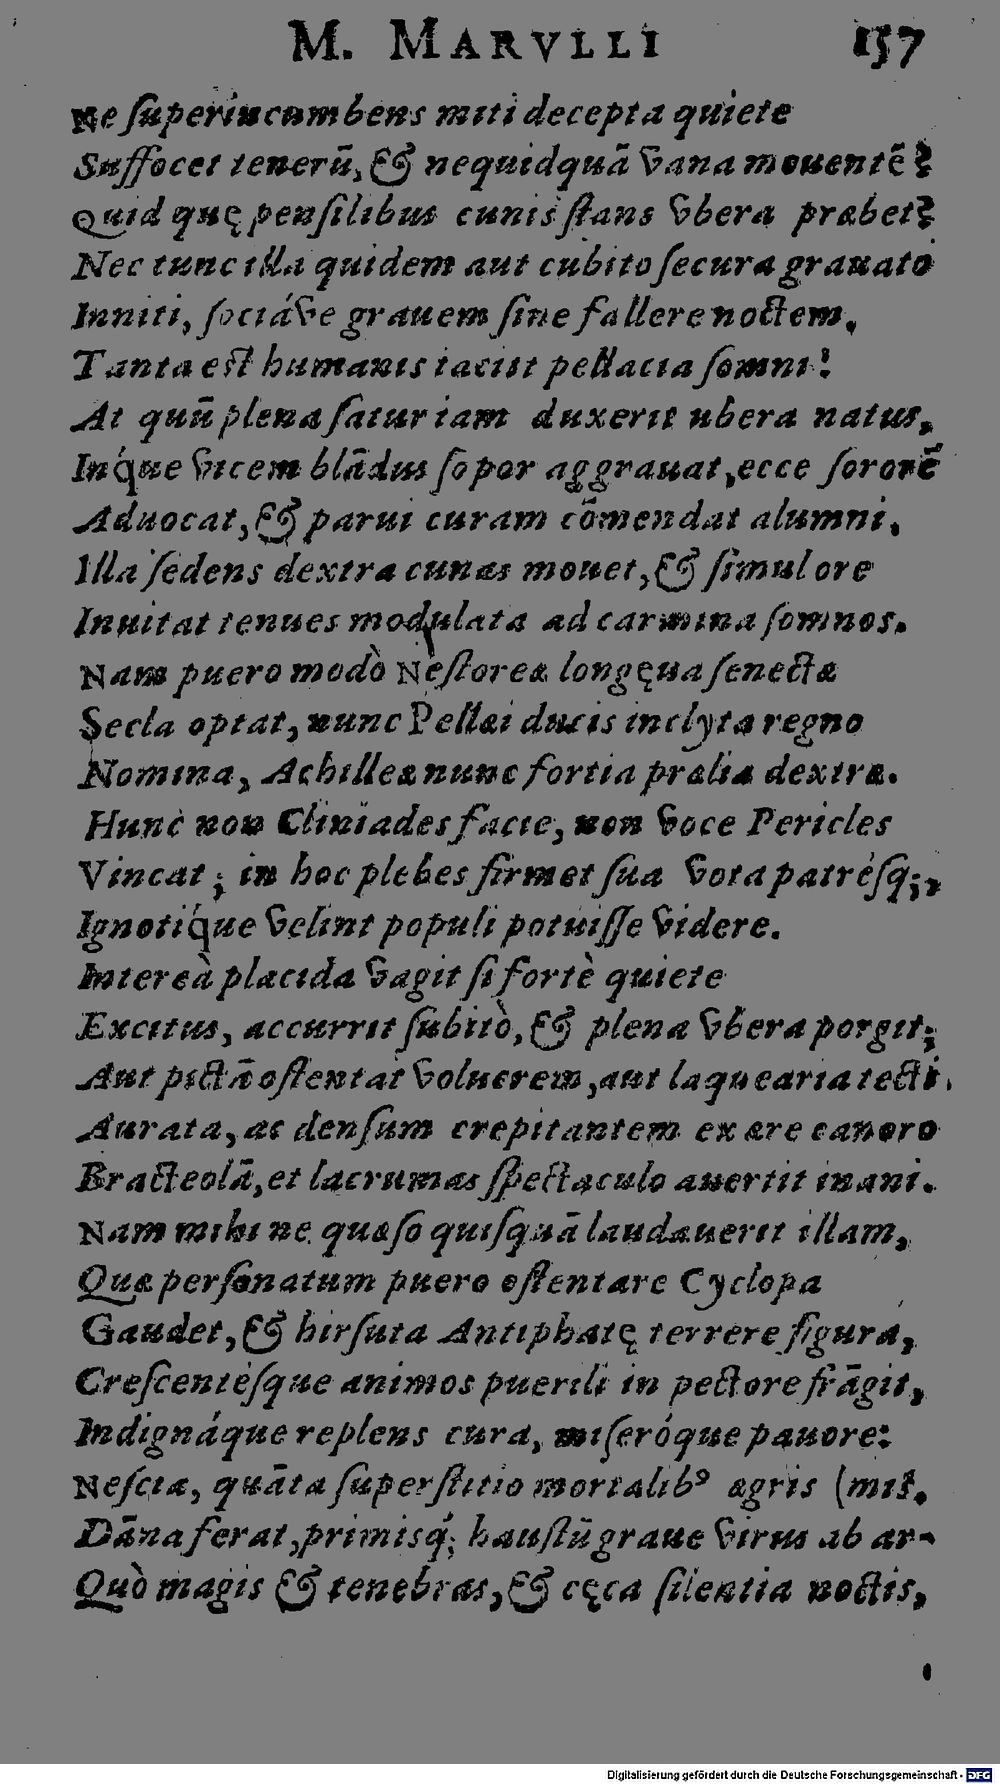 M. MARVLLI 157
Ne superincumbens miti decepta quiete
Suffocet tenerū, & nequidquā vana mouentē?
Quid quę pensilibus cunis stans vbera præbet?
Nec tunc illa quidem aut cubito secura grauato
Inniti, sociáve grauem sine fallere noctem,
Tanta est humanis tacitt pellacia somni!
At quū plena satur iam duxerit ubera natus,
Inq́ue vicem blādus sopor aggrauat, ecce sororē
Aduocat, & parui curam cōmendat alumni.
Illa sedens dextra cunas mouet, & simul ore
Inuitat tenues modulata ad carmina somnos.
Nam puero modò Nestoreæ longęua senectæ
Secla optat, nunc Pellæi ducis inclyta regno
Nomina, Achilleæ nunc fortia prælia dextræ.
Hunc non Cliniades facie, non voce Pericles
Vincat; in hoc plebes firmet sua vota patrésq;,
Ignotiq́ue velint populi potuisse videre.
Intereà placida vagit si fortè quiete
Excitus, accurrit subitò, & plena vbera porgit;
Aut pictā ostentat volucrem, aut laquearia tecti.
Aurata, ac densum crepitantem ex ære canoro
Bracteolā, et lacrumas spectaculo auertit inani.
Nam mihi ne quæso quisquā laudauerit illam,
Quæ personatum puero ostentare Cyclopa
Gaudet, & hirsuta Antiphatę terrere figura,
Crescentésque animos puerili in pectore frāgit,
Indignáque replens cura, miseróque pauore:
Nescia, quāta superstitio mortalibꝰ ægris (mis.
Dāna ferat, primisq́; haustū graue virus ab ar-
Quò magis & tenebras, & cęca silentia noctis,
Digitalisierung gefördert durch die Deutsche Forschungsgemeinschaft - DFG